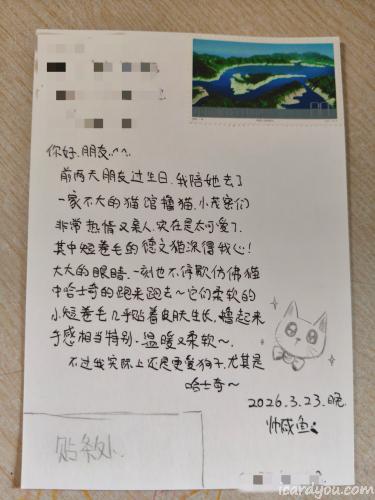 你好,朋友,^^
前两天朋友过生日,我陪她去了
一家不大的猫馆撸猫,小龙密们
非常热情又亲人,实在是太可爱了,
其中短卷毛的德文猫深得我心!
大大的眼睛,一刻也不停歇仿佛猫
中哈士奇的跑来跑去~它们柔软的
小短卷毛几乎贴着皮肤生长,撸起来
手感相当特别,温暖又柔软~
不过我实际上还是更爱狗子,尤其是
哈士奇~
2026.3.23.晚
帅咸鱼
贴条处
icardyou.com